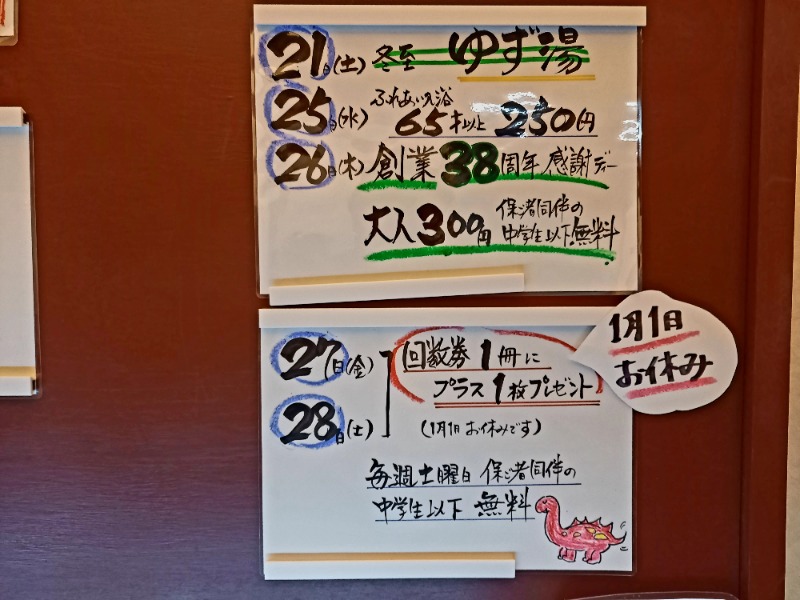 21日(土) 冬至 ゆず湯
25日(水) ふれあい入浴
65才以上 250円
26日(木) 創業38周年感謝デー
大人300円 保ゴ者同伴の
中学生以下無料
27日(金) 回数券1冊に
プラス1枚プレゼント
28日(土) (1月1日お休みです)
毎週土曜日 保ゴ者同伴の
中学生以下 無料
1月1日
お休み